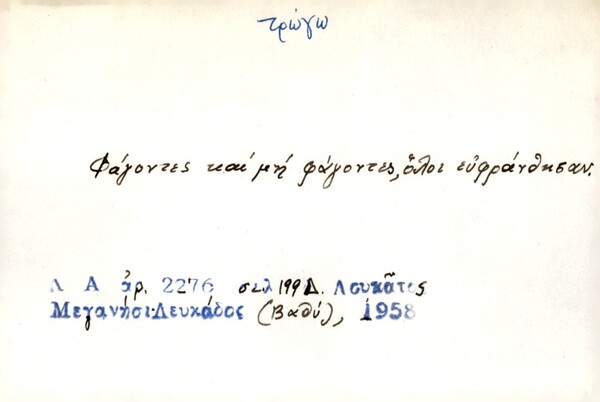 τρώγω
Φάγοντες καί μή φάγοντες, ὅλοι εὐφράνθησαν.
Λ Α ἀρ. 2276 σελ 199 Δ. Λουκᾶτος
Μεγανήσι-Λευκάδος (Βαθύ), 1958